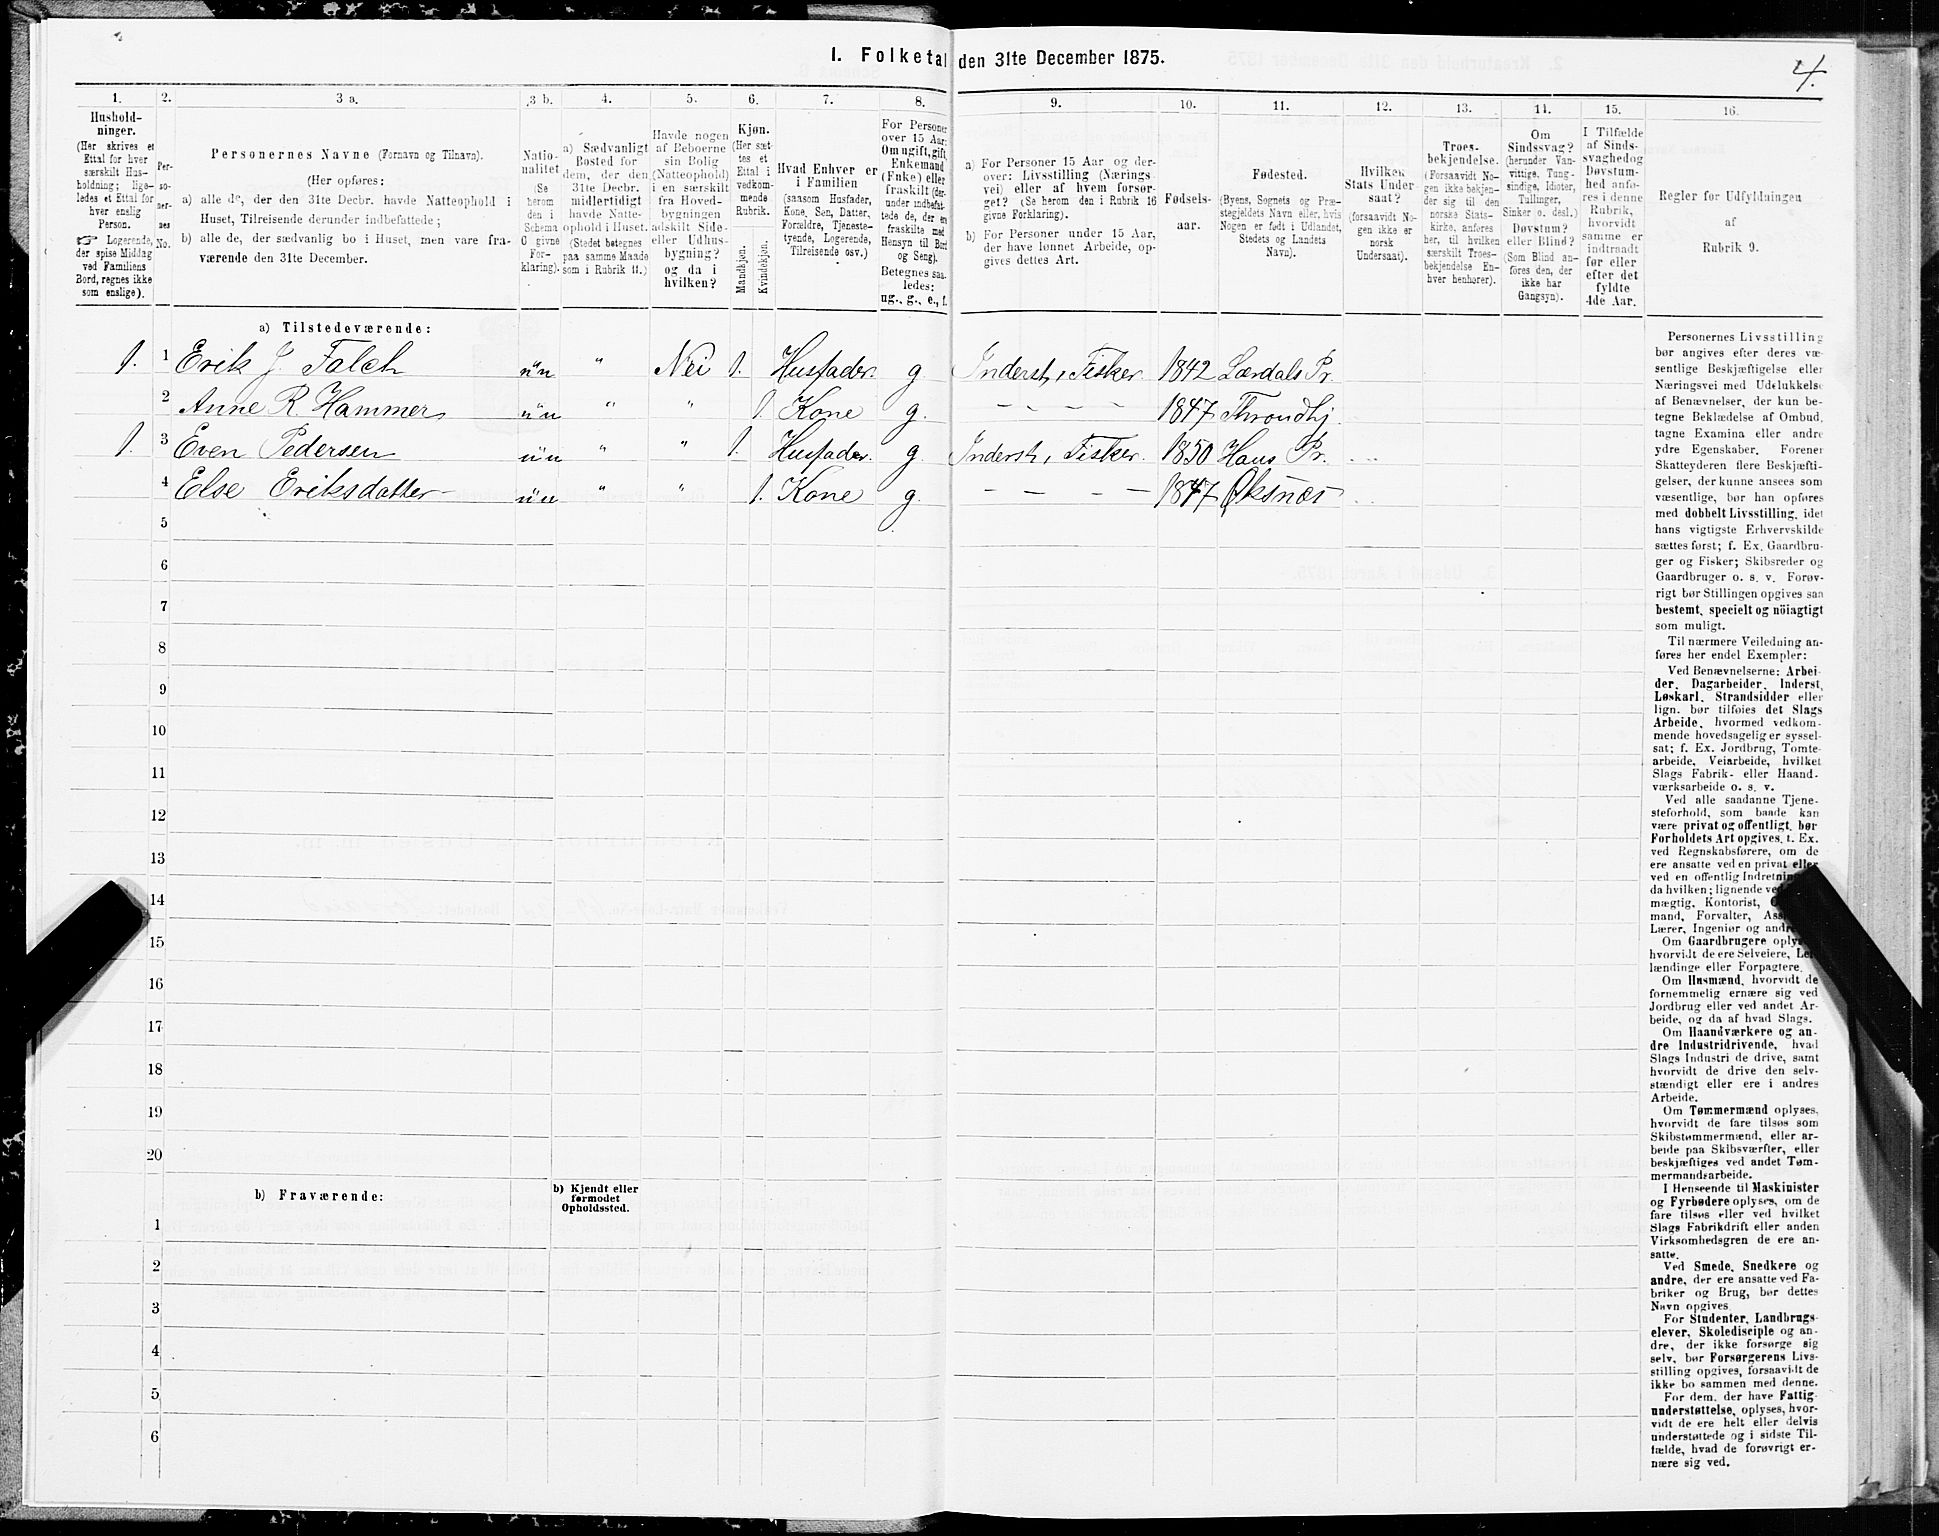 I. Folketal den 31te December 1875.
4.
1. 2. 3 a. 3 b. 4. 5. 6. 7. 8. 9. 10. 11. 12. 13. 14. 15. 16.
Hushold-
ninger.
(Her skrives et
Ettal for hver
særskilt Hus-
holdning; lige-
ledes et Ettal for
hver enslig
Person.
☞ Logerende,
der spise Middag
ved Familiens
Bord, regnes ikke
som enslige).
Per-
so-
ner-
nes
No.
Personernes Navne (Fornavn og Tilnavn).
(Her opføres:
a) alle de, der den 31te Decbr. havde Natteophold i
Huset, Tilreisende derunder indbefattede;
b) alle de, der sædvanlig bo i Huset, men vare fra-
værende den 31te December.
Natio-
nalitet
(Se
herom
den i
Schema
C givne
For-
klaring).
a) Sædvanligt
Bosted for
dem, der den
31te Decbr.
midlertidigt
havde Natte-
ophold i Huset.
(Stedet betegnes
paa samme Maade
som i Rubrik 11.)
Havde nogen
af Beboerne
sin Bolig
(Natteophold)
i en særskilt
fra Hoved-
bygningen
adskilt Side-
eller Udhus-
bygning?
og da i
hvilken?
Kjøn.
(Her sæt-
tes et
Ettal i
vedkom-
mende
Rubrik.
Mandkjøn.
Kvindekjøn.
Hvad Enhver er
i Familien
(saasom Husfader,
Kone, Søn, Datter,
Forældre, Tjeneste-
tyende, Logerende,
Tilreisende osv.)
For Personer
over 15 Aar:
Om ugift, gift,
Enkemand
(Enke) eller
fraskilt (der-
under indbefat-
tede de, der ere
fraskilte med
Hensyn til Bord
og Seng).
Betegnes saa-
ledes:
ug., g., e., f.
a) For Personer 15 Aar og der-
over: Livsstilling (Nærings-
vei) eller af hvem forsør-
get? (Se herom den i Rubrik 16
givne Forklaring).
b) For Personer under 15 Aar,
der have lønnet Arbeide, op-
gives dettes Art.
Fødsels-
aar.
Fødested.
(Byens, Sognets og Præ-
stegjeldets Navn eller, hvis
Nogen er født i Udlandet,
Stedets og Landets
Navn).
Hvilken
Stats Under-
saat?
(forsaavidt No-
gen ikke er
norsk
Undersaat).
Troes-
bekjendelse.
(Forsaavidt No-
gen ikke bekjen-
der sig til den
norske Stats-
kirke, anføres
her, til hvilken
særskilt Troes-
bekjendelse En-
hver henhører).
Om
Sindssvag?
(herunder Van-
vittige, Tung-
sindige, Idioter,
Tullinger,
Sinker o. desl.)
Døvstum?
eller Blind?
(Som Blind an-
føres den, der
ikke har
Gangsyn).
I Tilfælde
af Sinds-
svaghed og
Døvstum-
hed anfø-
res i denne
Rubrik,
hvorvidt
samme er
indtraadt
før eller
efter det
fyldte
4de Aar.
Regler for Udfyldningen
af
Rubrik 9.
a) Tilstedeværende:
1. 1 Erik J. Falch n'n " Nei 1. Husfader. g. Inderst, Fisker. 1842 Lærdals Pr.
2 Anne R. Hammer n'n " " 1. Kone g. - - - - 1847 Throndhj.
1. 3 Even Pedersen n'n " " 1. Husfader. g. Inderst, Fisker. 1850 Haus Pr.
4 Else Eriksdatter n'n " " 1. Kone g. - - - - 1847 Øksnæs
5
6
7
8
9
10
11
12
13
14
15
16
17
18
19
20
b) Fraværende:
b) Kjendt eller
formodet
Opholdssted.
1
2
3
4
5
6
Personernes Livsstilling
bør angives efter deres væ-
sentlige Beskjæftigelse eller
Næringsvei med Udelukkelse
af Benævnelser, der kun be-
tegne Beklædelse af Ombud,
tagne Examina eller andre
ydre Egenskaber. Forener
Skatteyderen flere Beskjæfti-
gelser, der kunne ansees som
væsentlige, bør han opføres
med dobbelt Livsstilling, idet
hans vigtigste Erhvervskilde
sættes først; f. Ex. Gaardbru-
ger og Fisker; Skibsreder og
Gaardbruger o. s. v. Forøv-
rigt bør Stillingen opgives saa
bestemt, specielt og nöiagtigt
som muligt.
Til nærmere Veiledning an-
føres her endel Exempler:
Ved Benævnelserne: Arbei-
der, Dagarbeider, Inderst,
Løskarl, Strandsidder eller
lign. bør tilføies det Slags
Arbeide, hvormed vedkom-
mende hovedsagelig er syssel-
sat; f. Ex. Jordbrug, Tomte-
arbeide, Veiarbeide, hvilket
Slags Fabrik- eller Haand-
værksarbeide o. s. v.
Ved alle saadanne Tjene-
steforhold, som baade kan
være privat og offentligt, bør
Forholdets Art opgives, t. Ex.
ved Regnskabsførere, om de
ere ansatte ved en privat eller
ved en offentlig
da hvilken; lignende
mægtig, Kontorist,
mand, Forvalter,
Lærer, Ingeniør og
Om Gaardbrugere
hvorvidt de ere Selveiere,
lændinge eller Forpagtere.
Om Husmænd, hvorvidt de
fornemmelig ernære sig ved
Jordbrug eller ved andet Ar-
beide, og da af hvad Slags.
Om Haandværkere og an-
dre Industridrivende, hvad
Slags Industri de drive, samt
hvorvidt de drive den selv-
stændigt eller ere i andres
Arbeide.
Om Tømmermænd oplyses,
hvorvidt de fare tilsøs som
Skibstømmermænd, eller ar-
beide paa Skibsværfter, eller
beskjæftiges ved andet Tøm-
mermandsarbeide.
I Henseende til Maskinister
og Fyrbødere oplyses, om de
fare tilsøs eller ved hvilket
Slags Fabrikdrift eller anden
Virksomhedsgren de ere an-
satte.
Ved Smede, Snedkere og
andre, der ere ansatte ved Fa-
briker og Brug, bør dettes
Navn opgives.
For Studenter, Landbrugs-
elever, Skoledisciple og an-
dre, der ikke forsørge sig
selv, bør Forsørgerens Livs-
stilling opgives, forsaavidt de
ikke bo sammen med denne.
For dem, der have Fattig-
understøttelse, oplyses, hvor-
vidt de ere helt eller delvis
understøttede og i sidste Til-
fælde, hvad de forøvrigt er-
nære sig ved.